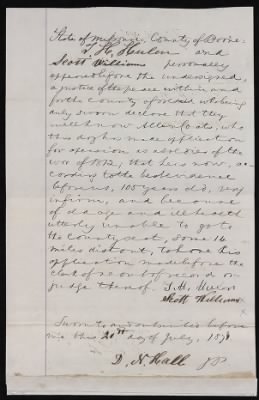 State of Missouri, County of Boone:
T. H. Hulen and
Scott Williams personally
appeared before the undersigned,
a justice of the peace within and
for the county aforesaid who being
duly sworn declare that they
well know Allen Coats, who
this day has made application
for a pension as a soldier of the
war of 1812, that he is now, ac-
cording to the best evidence
before us, 105 years old, very
infirm, and because
of old age and ill health
utterly unable to go to
the County seat, some 16
miles distant, to have his
application made before the
clerk of a court of record or
judge thereof. T. H. Hulen
Scott Williams
Sworn to and subscribed before
me this 20th day of July, 187
D. N. Hall JP